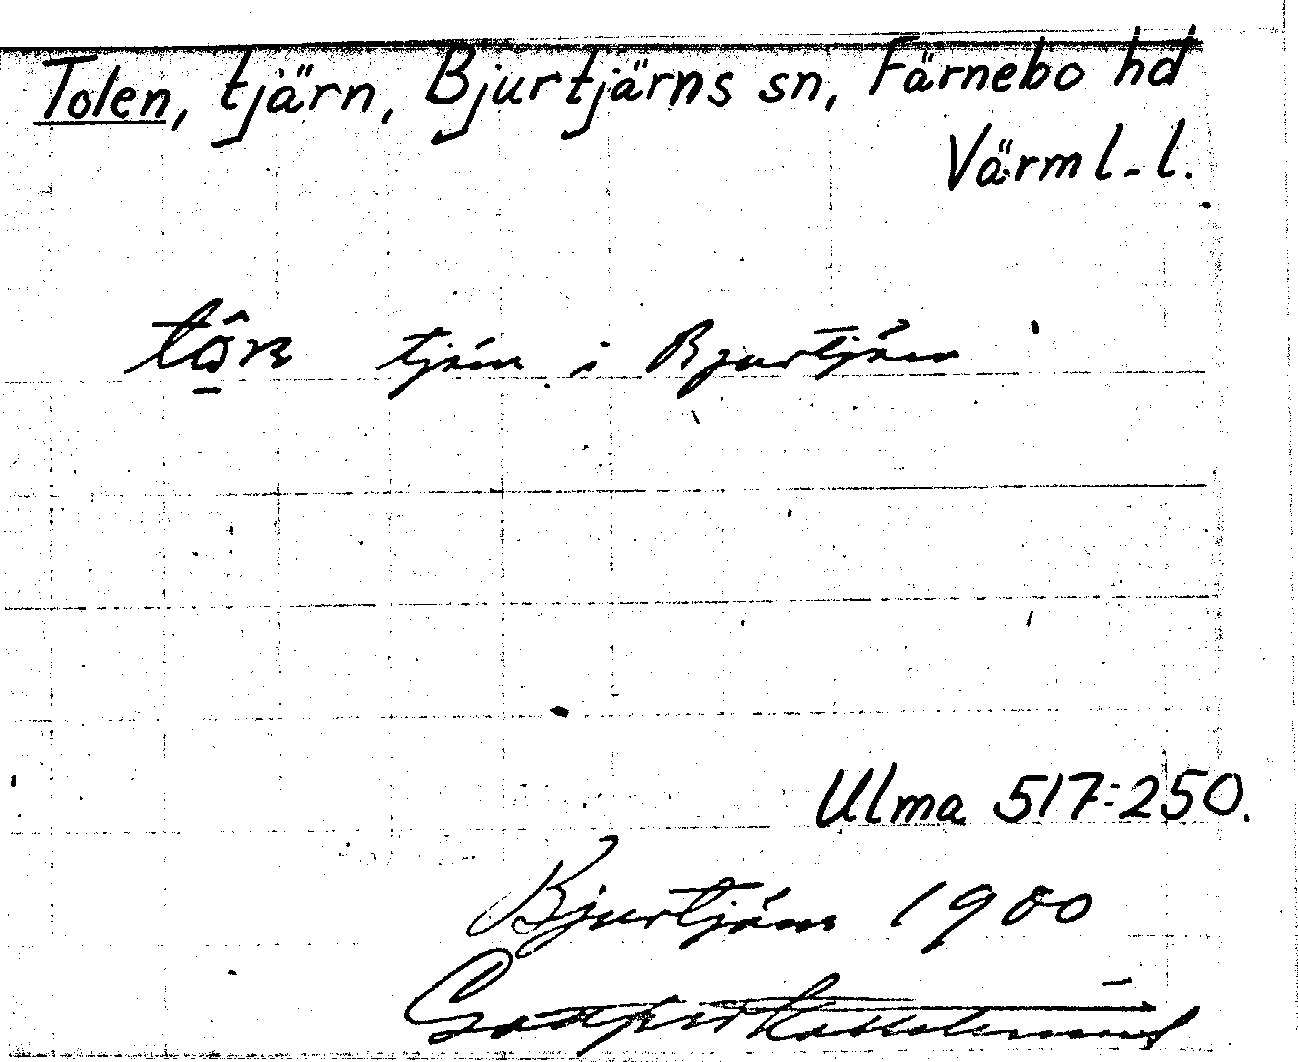 Tolen, tjärn, Bjurtjärns sn, Färnebo hd
Värml-l.
tjärn i Bjurtjärn
Ulma 517:250.
Bjurtjärn 1900